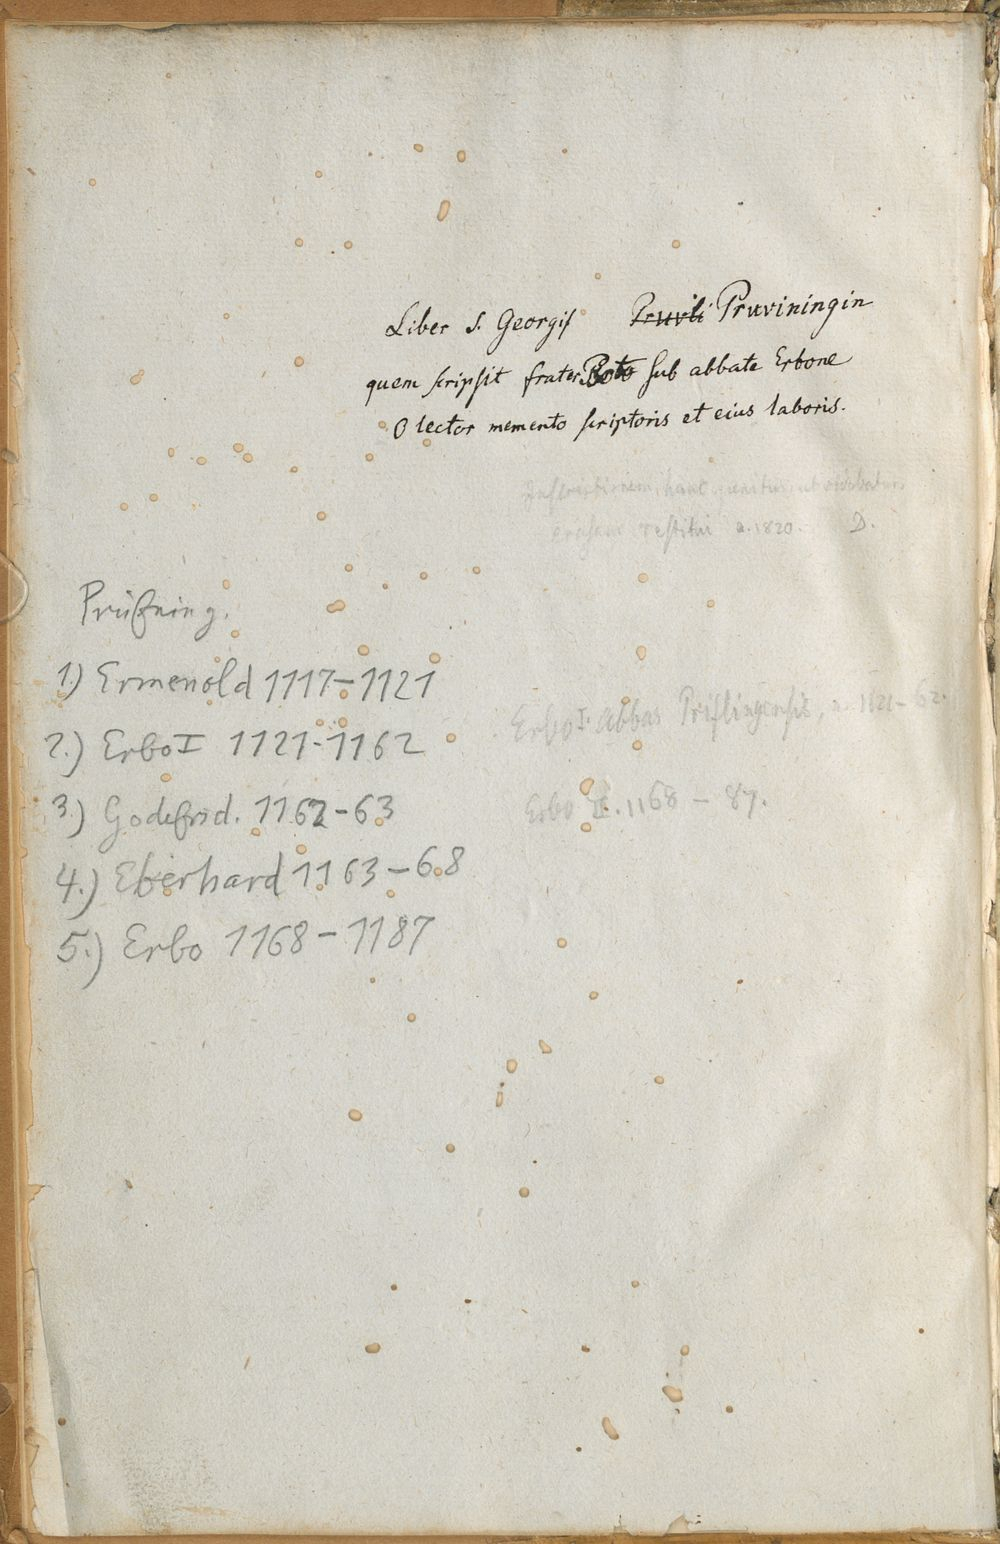 Liber S. Georgij Pruvli Pruviningin
quem scripsit frater Boto sub abbate Erbone
O lector memento scriptoris et eius laboris.
Inscriptionem hanc penitus, ut videbatur,
erasam restitui a. 1820. D.
Prüfning.
1.) Ermenold 1117-1121
2.) Erbo I 1121-1162
3.) Godefrid. 1162-63
4.) Eberhard 1163-68
5.) Erbo 1168-1187
Erbo I. Abbas Priflingensis, a. 1121-62.
Erbo II. 1168 - 87.